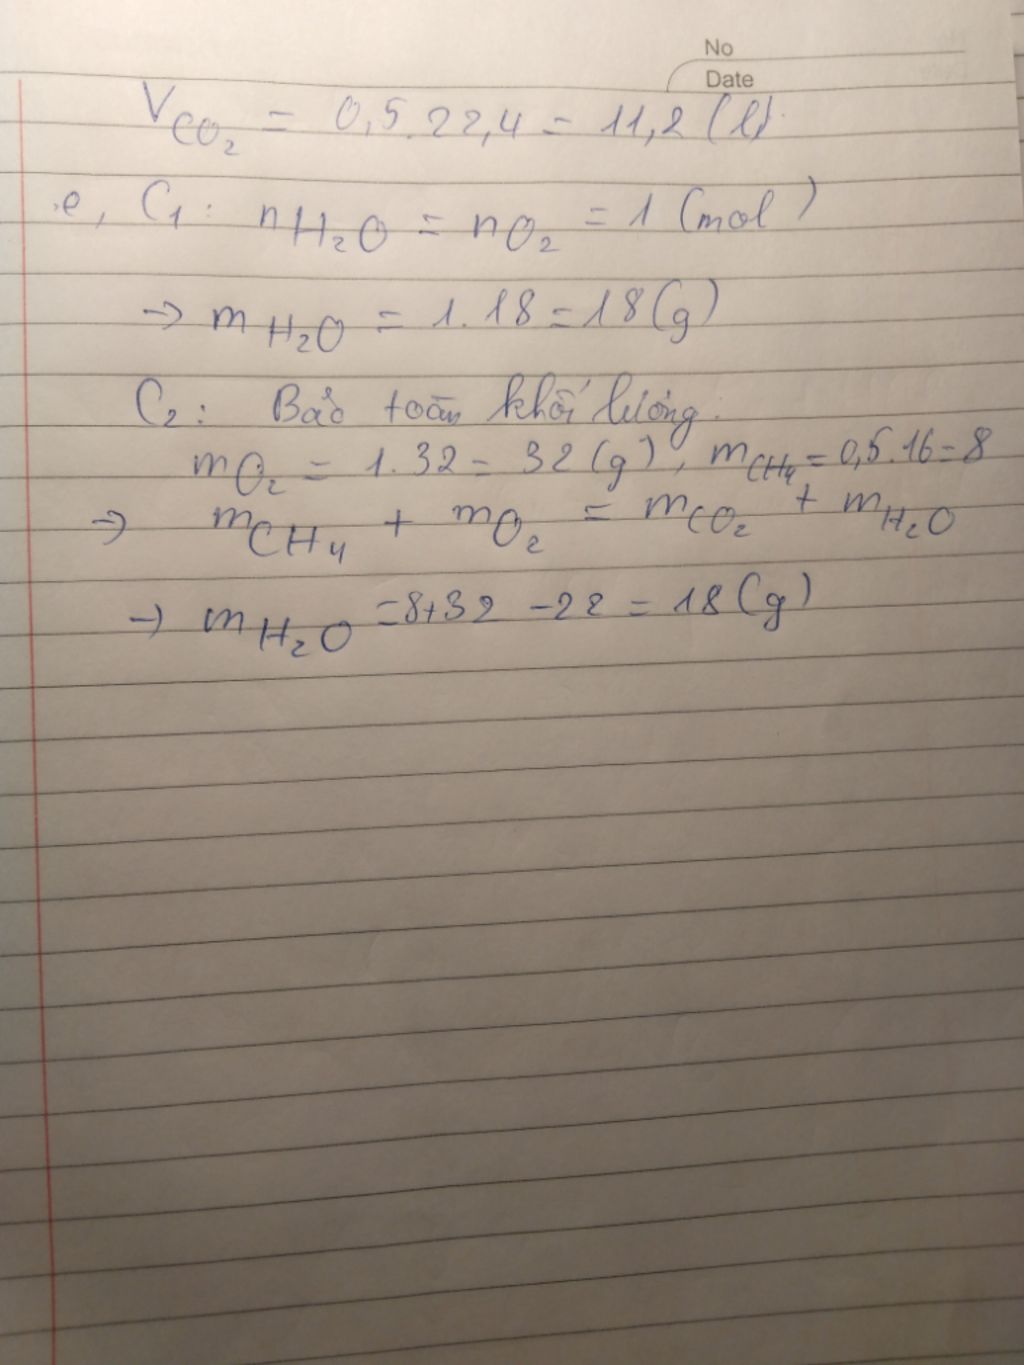 No
Date
V CO₂ = 0,5.22,4 = 11,2 (l)
e, C₁: nH₂O = nO₂ = 1 (mol)
→ mH₂O = 1.18 = 18(g)
C₂: Bảo toàn khối lượng.
mO₂ = 1.32 = 32(g), mCH₄ = 0,5.16 = 8
→ mCH₄ + mO₂ = mCO₂ + mH₂O
→ mH₂O = 8+32 - 22 = 18(g)